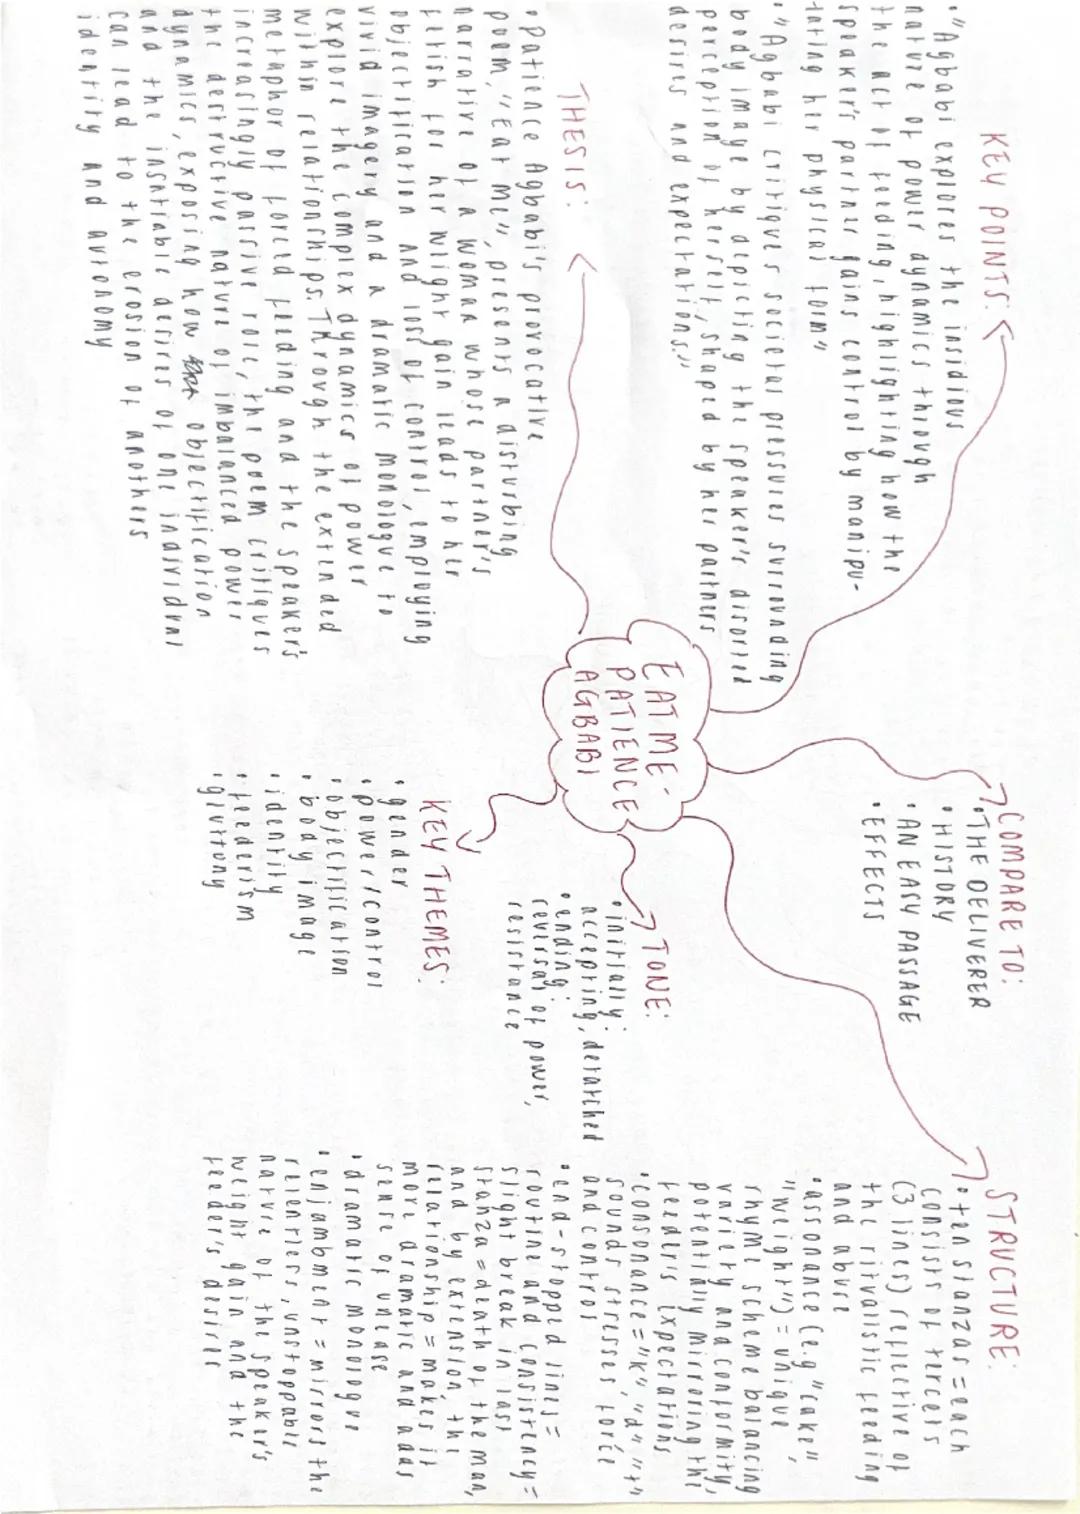 KEY POINTS:
• "Agbabi explores the insidious
nature of power dynamics through
the act of feeding, highlighting how the
speaker's partner gains control by manipu-
lating her physical form"
• "Agbabi critique's societal pressures surrounding
body image by depicting the speaker's disorted
perception of herself, shaped by her partners
desires and expectations."
THESIS:
• Patience Agbabi's provocative
poem, "Eat me", presents a disturbing
narrative of a woman whose partner's
fetish for her weight gain leads to her
objectification and loss of control, employing
vivid imagery and a dramatic monologue to
explore the complex dynamics of power
within relationships. Through the extended
metaphor of forced feeding and the speaker's
increasingly passive role, the poem critiques
the destructive nature of imbalanced power
dynamics, exposing how objectification
and the insatiable desires of one individual
can lead to the erosion of anothers
identity and autonomy
EAT ME -
PATIENCE
AGBABI
COMPARE TO:
• THE DELIVERER
• HISTORY
• AN EASY PASSAGE
• EFFECTS
TONE:
• initially:
accepting, detatched
• ending:
reversal of power,
resistance
KEY THEMES:
• gender
• power/control
• objectification
• body image
• identity
• feederism
• gluttony
STRUCTURE:
• ten stanzas = each
consists of tercets
(3 lines) reflective of
the ritualistic feeding
and abuse
• assonance (e.g "cake",
"weight") = unique
rhyme scheme balancing
variety and conformity,
potentially mirroring the
feeder's expectations
• consonance = "k", "d" "t"
sound stresses force
and control
• end-stopped lines =
routine and consistency =
slight break in last
stanza = death of the man,
and by extension, the
relationship = makes it
more dramatic and adds
sense of unease
• dramatic monologue
• enjambment = mirrors the
relentless, unstoppable
nature of the speaker's
weight gain and the
feeder's desires